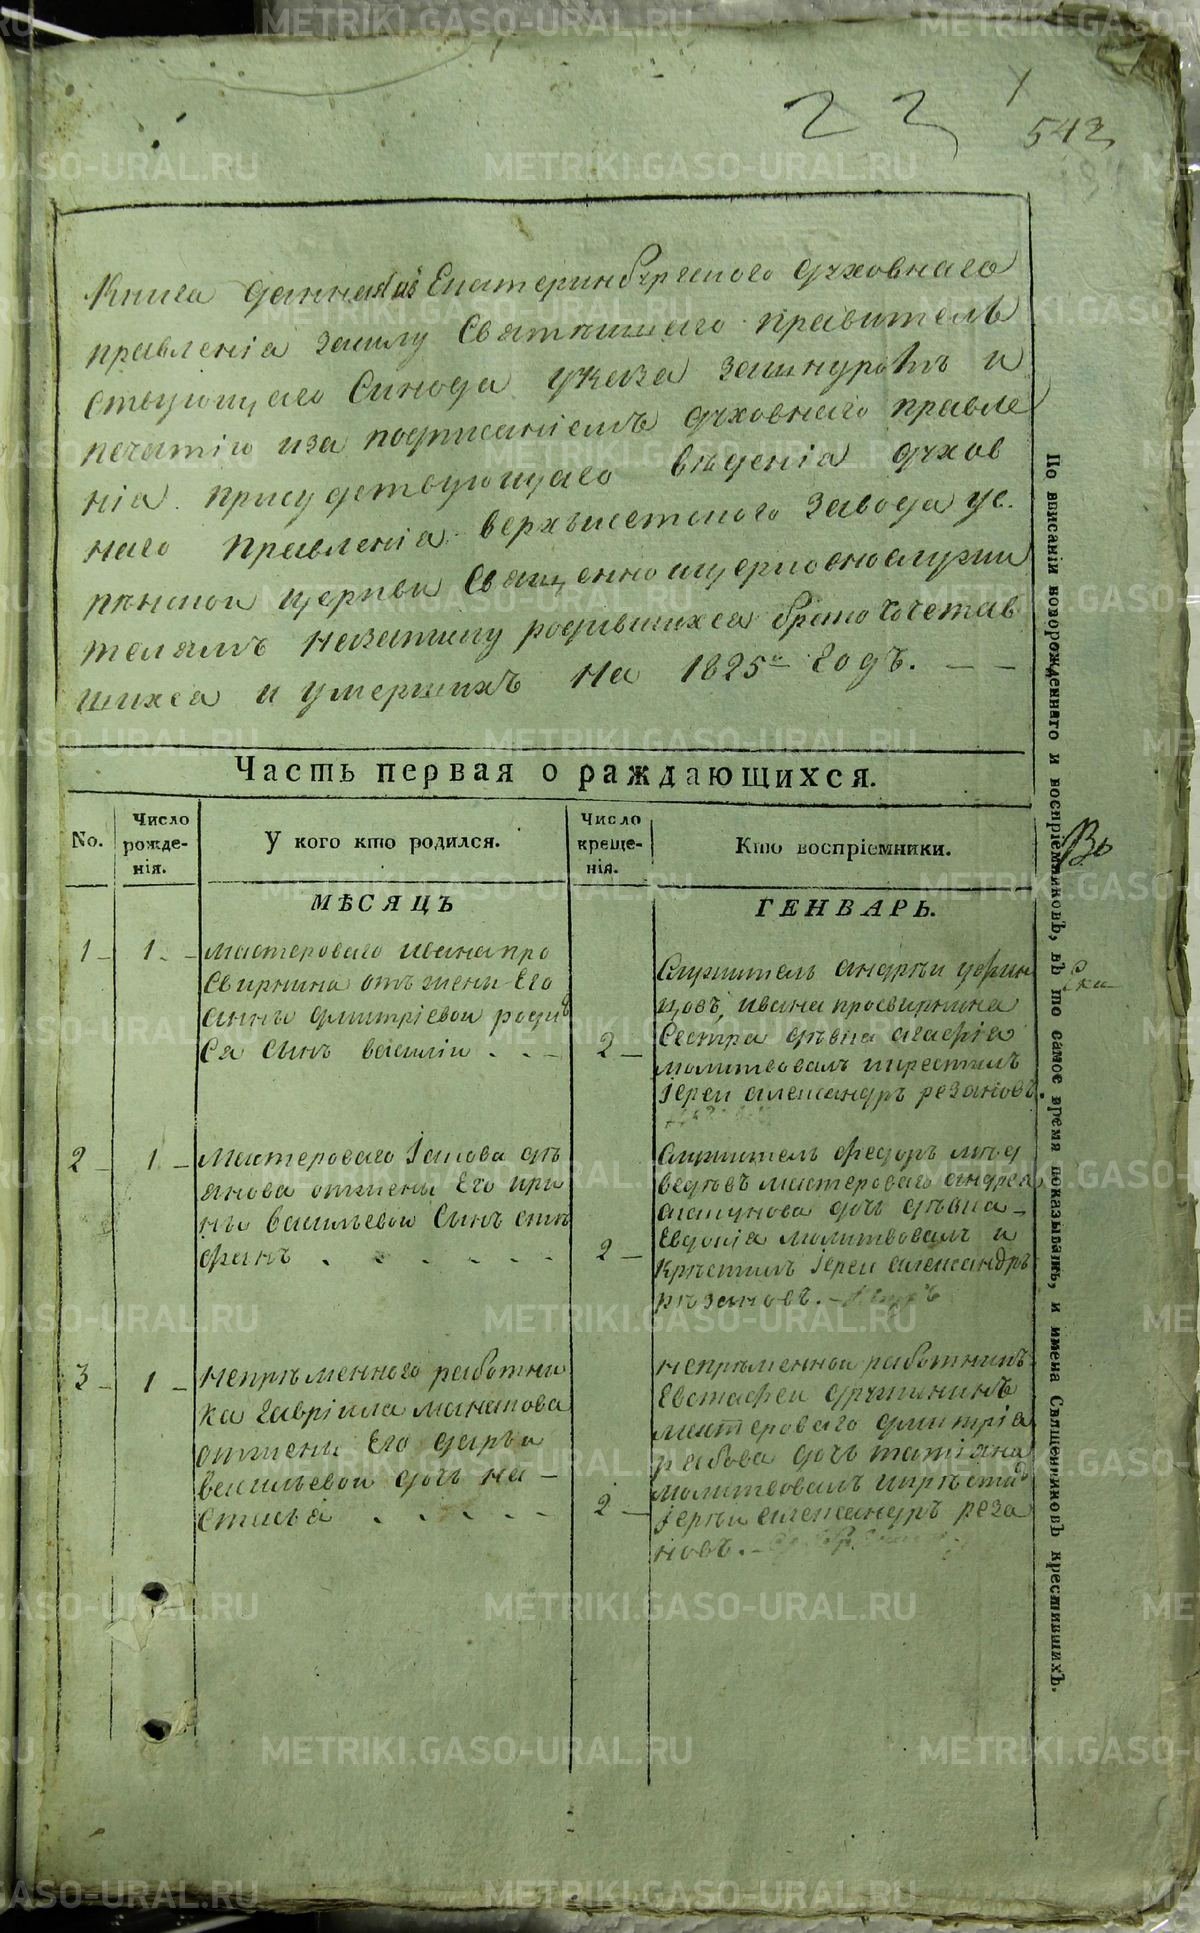 22
542
Книга данная изъ Екатеринбургскаго духовнаго
правленія засилу Святѣишаго правитель
ствующаго Синода указа зашнуромъ и
печатію иза подписаніемъ духовнаго правле
нія присудствующаго вѣденія духов
наго Правленія верхъисетскаго завода ус.
пѣнской церкви Священноцерковнослужи
телямъ Назапишу родившихся бракосочетав
шихся и умершихъ На 1825й Годъ. — —
Часть первая о раждающихся.
No.
Число рожде-нія.
У кого кто родился.
Число креще-нія.
Кто воспріемники.
МѢСЯЦЪ ГЕНВАРЬ.
1 – 1 – мастероваго ивана про
Свирнина отъ жены Его
анны дмитріевои роди
ся сынъ василіи . . –
2 –
Служитель андрѣи
цовъ, ивана просвирнина
Сестра дѣвка агафія
молитвовалъ икрестилъ
Іереи александръ резановъ.
2 – 1 – Мастероваго Іакова дѣ
янова отжены Его ири
ны васильевои Сынъ сте
фанъ . . . . – –
2 –
Служитель федоръ мѣд
ведевъ мастероваго андрея
дочь дѣвка –
Евдокія молитвовалъ и
Крѣстилъ Іереи александръ
рѣзановъ. –
3 – 1 – непрѣменного работни
ка Гавріила
отжены Его дарьи
васильевои дочь на –
стасья . . . . – –
2 –
непрѣменнои работникъ
Евстафеи дружининъ
мастероваго дмитрія
рябова дочь татіяна
молитвовалъ икрѣстил
Іерѣи александръ реза
новъ. –
По вписаніи новорожденнаго и воспріемниковъ, въ то самое время показывать, и имена Священниковъ крестившихъ.
METRIKI.GASO-URAL.RU